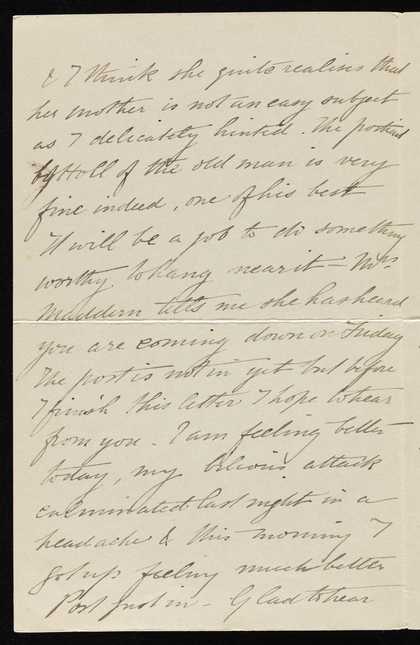 & I think she quite realises that
her mother is not an easy subject
as I delicately hinted. The portrait
by Holl of the old man is very
fine indeed, one of his best
It will be a job to do something
worthy to hang near it – Mrs.
Maddern tells me she has heard
you are coming down on Friday
The post is not in yet but before
I finish this letter I hope to hear
from you – I am feeling better
today, my bilious attack
culminated last night in a
headache & this morning I
got up feeling much better
Post just in – Glad to hear